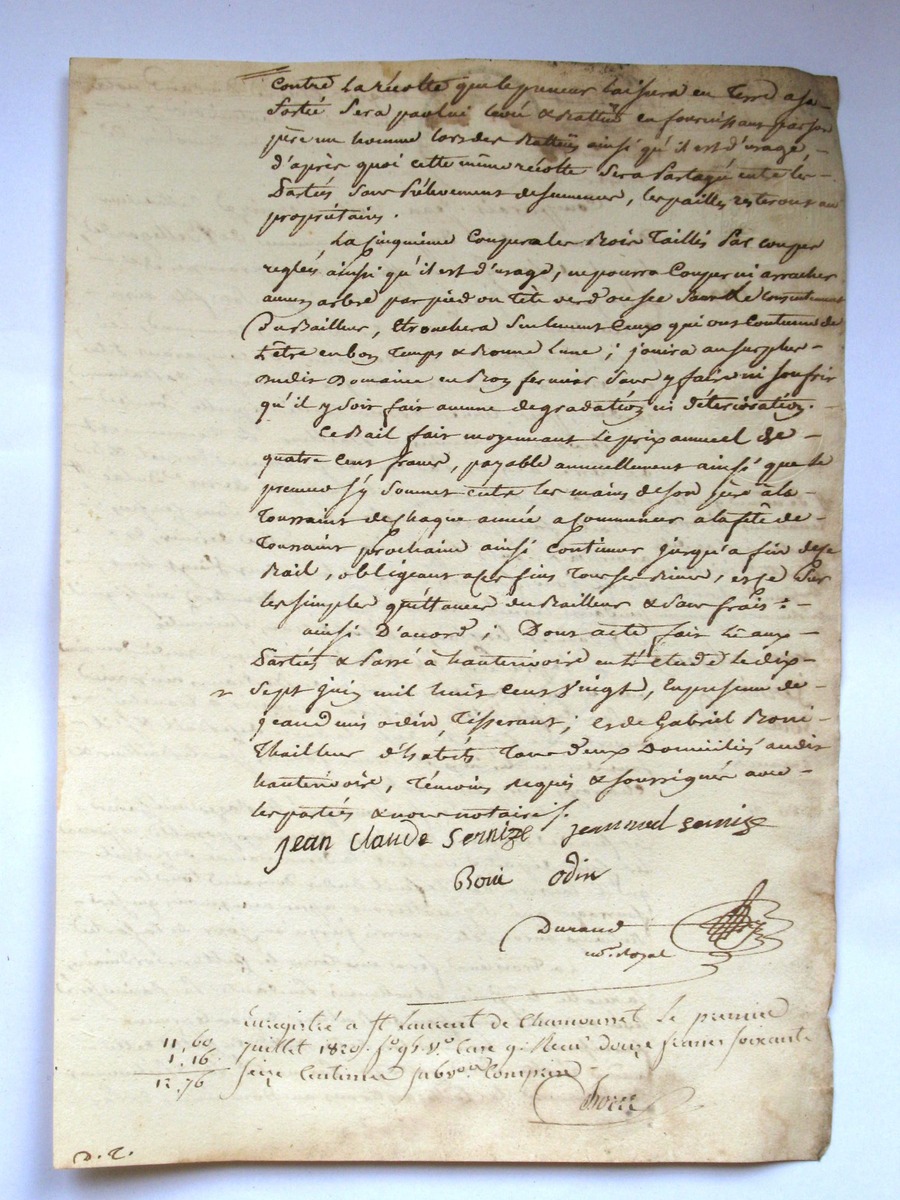 contre la récolte que le preneur laissera en Terre a sa
Sortie Sera par lui levée & Battüe en fournissant par son
père un homme lors des Battües ainsi qu'il est d'usage
d'après quoi cette même récolte Sera Partagée entre les
Parties Sans Prélevement de semence, les pailles resteront au
propriétaire.
La Cinquième Coupera les Bois Taillis Par coupes
reglées ainsi qu'il est d'usage, ne pourra Couper ni arracher
aucun arbre par pied ou Tête verd ou sec Sans le Consentement
Du Bailleur, Et Seulement Ceux qui ont Coutume de
L'être en bon Temps & Bonne Lune ; jouira au surplus
dudit Domaine en Bon fermier Sans y faire ni souffrir
qu'il y Soit fait aucune dégradation ni détérioration.
Ce Bail fait moyennant Le prix annuel de
quatre Cent francs, payable annuellement ainsi que le
preneur s'y Soumet entre les mains de son père à la
Toussaint de chaque année a Commencer a la fête de
Toussaint prochaine ainsi Continuer jusqu'a fin de ce
Bail, obligeant a ces fins Tous Ses Biens, et ce Sur
les simples quittances du Bailleur & Sans frais :
ainsi D'accord ; Dont acte fait Lu aux
Parties & Passé à hauterivoire en L'étude Le dix
Sept juin mil huit Cent Vingt, En présence de
jean odin, Tisserant ; et de Gabriel Boni
Thailleur d'habits Tous deux Domiciliés audit
hauterivoire, Témoins requis & soussignés avec
les parties & nous notaire.
jean Claude Sernize
Boni odin
Durand
not. Royal
Enregistré a St Laurent de Chamousset Le premier
juillet 1820 fo 96 Vo Case 9 Recu douze francs soixante
seize Centimes subvon Comprise
11,60
1.16
12.76
D. T.